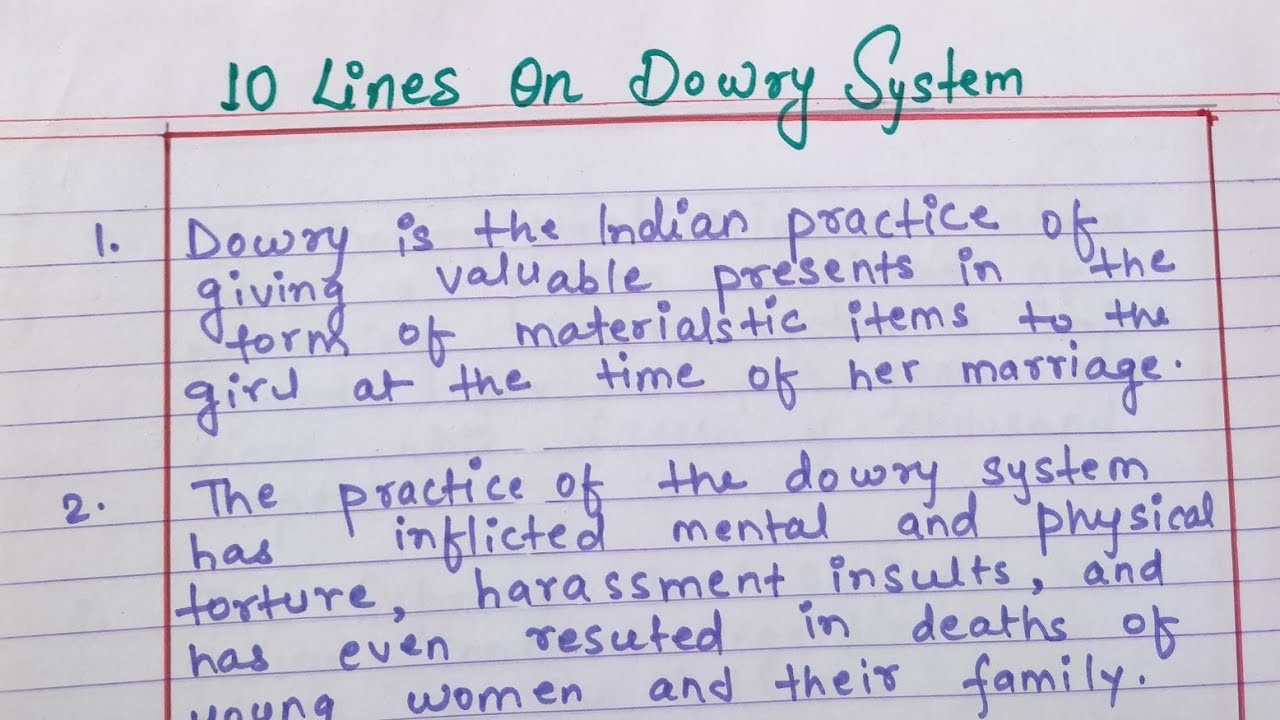 10 Lines On Dowry System
1. Dowry is the Indian practice of
giving valuable presents in the
form of materialstic items to the
girl at the time of her marriage.
2. The practice of the dowry system
has inflicted mental and physical
torture, harassment insults, and
has even resuted in deaths of
young women and their family.